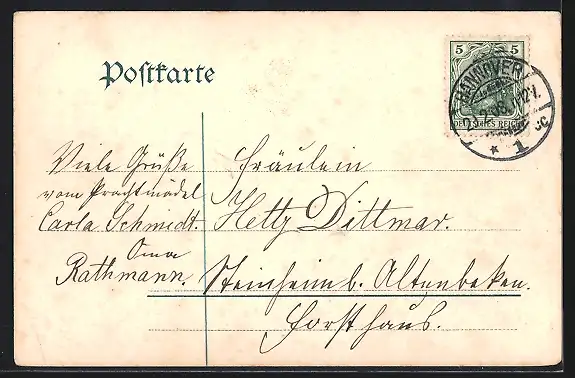 Postkarte
5 5
DEUTSCHES REICH
HANNOVER
* 1
Viele Grüße
vom Prachtmädel
Carla Schmidt.
Oma
Rathmann.
Fräulein
Hetty Dittmar.
Steinheim b. Altenbeken.
Forsthaus.